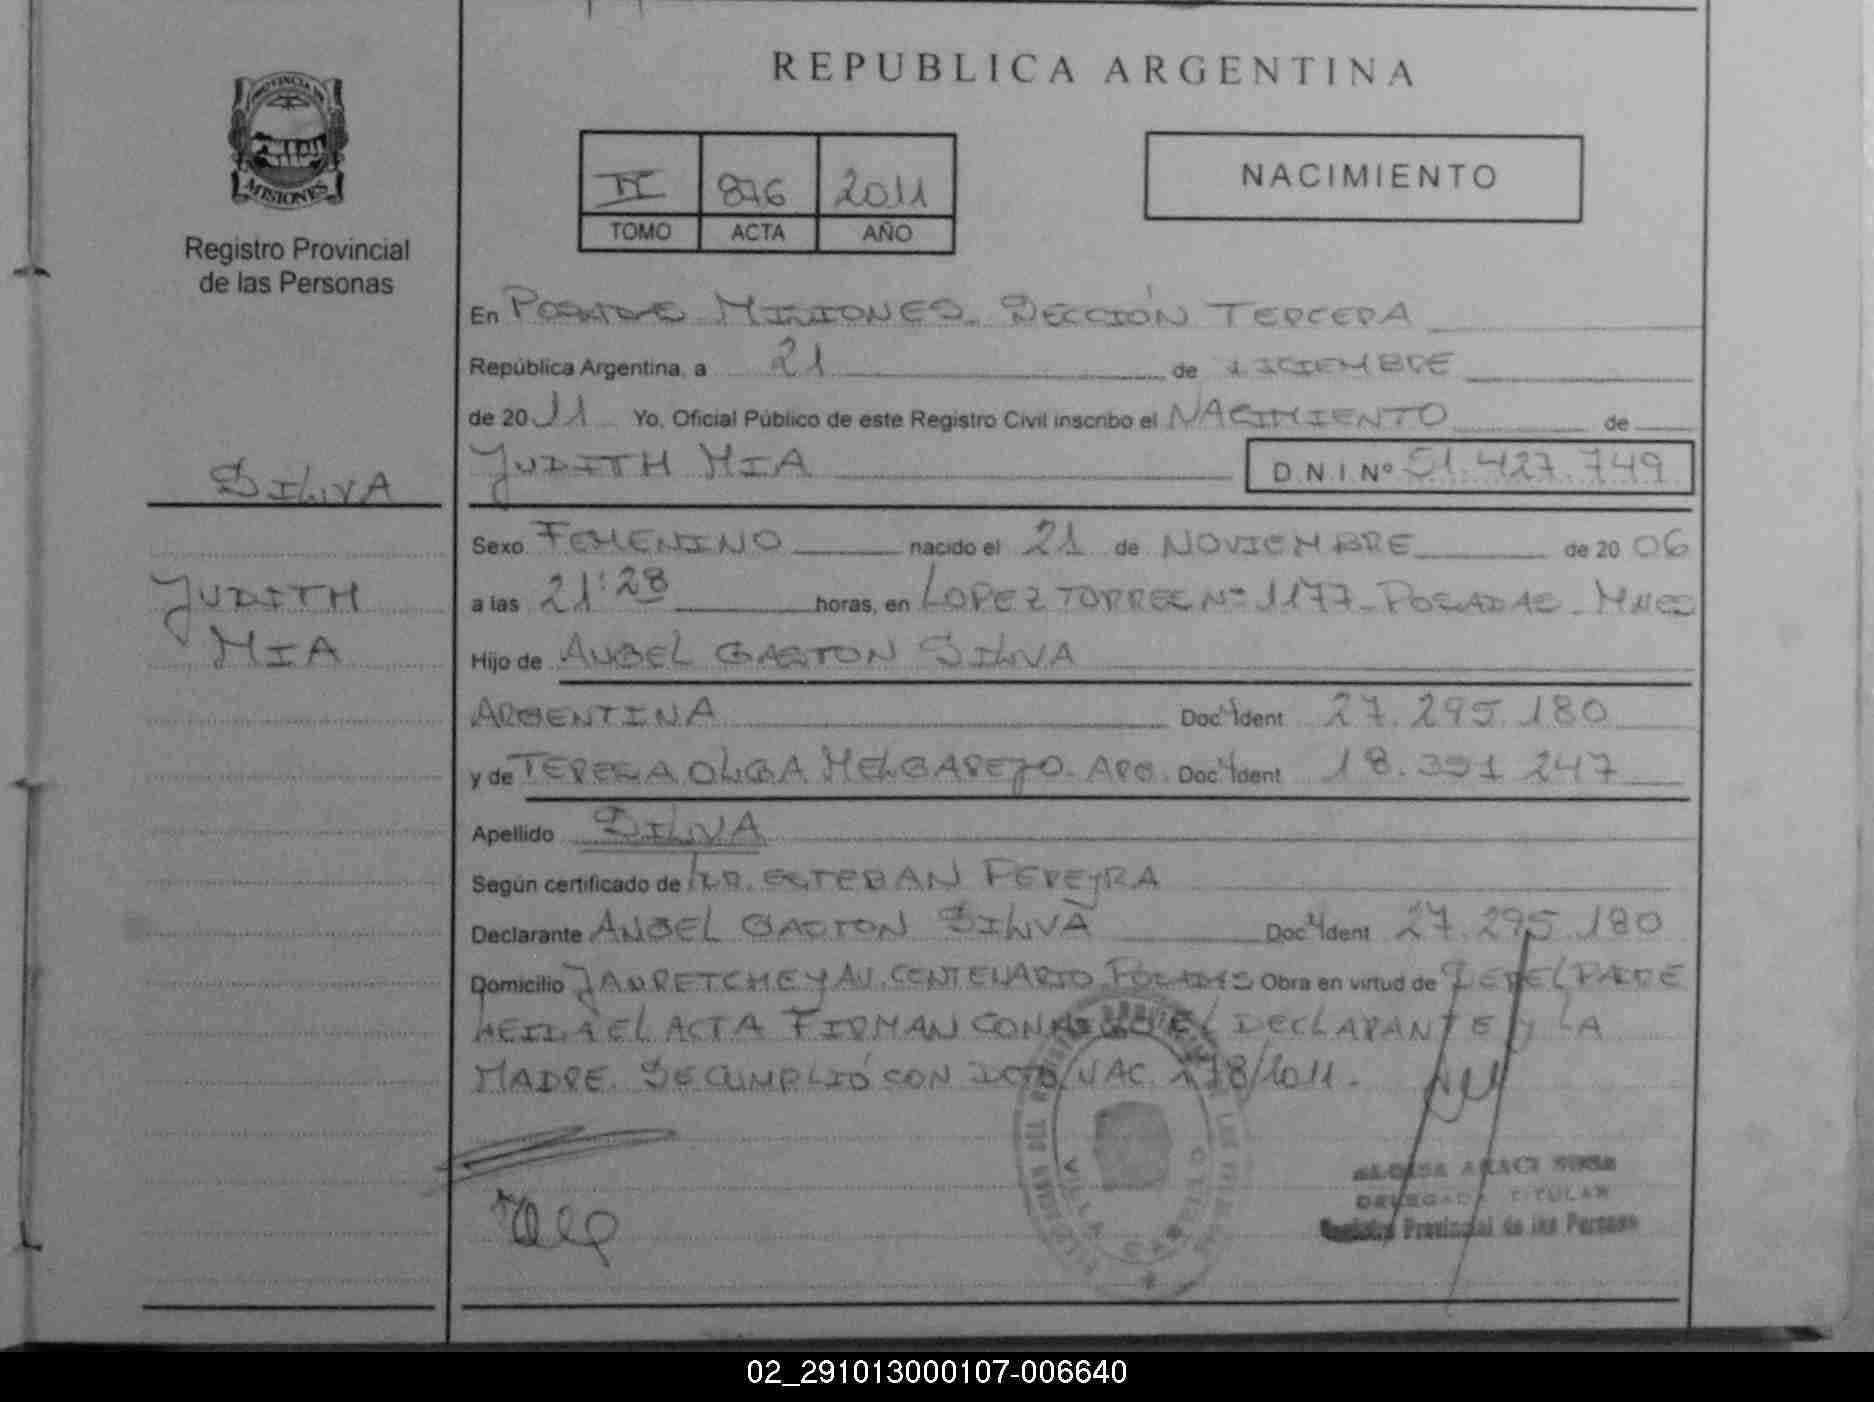 REPUBLICA ARGENTINA
PROVINCIA DE
MISIONES
Registro Provincial
de las Personas
876 2011
TOMO ACTA AÑO
NACIMIENTO
En POSADAS MISIONES. SECCIÓN TERCERA
República Argentina, a 21 de DICIEMBRE
de 2011 Yo, Oficial Público de este Registro Civil inscribo el NACIMIENTO de
SILVA
JUDITH MIA D.N.I.Nº 51.427.749
Sexo FEMENINO nacido el 21 de NOVIEMBRE de 2006
JUDITH
MIA
a las 21:28 horas, en LOPEZ TORRES Nº 1177 - POSADAS - MNES
Hijo de ANGEL GASTON SILVA
ARGENTINA Doc Ident 27.295.180
y de TERESA OLGA MELGAREJO. ARG. Doc Ident 18.391.247
Apellido SILVA
Según certificado de DR. ESTEBAN PEREYRA
Declarante ANGEL GASTON SILVA Doc Ident 27.295.180
Domicilio JAURETCHE Y AV. CENTENARIO POSADAS Obra en virtud de SER EL PADRE
LEIDA EL ACTA FIRMAN CONMIGO EL DECLARANTE Y LA
MADRE. SE CUMPLIÓ CON DCTO/NAC. 278/2011.
VILLA
DELEGADA TITULAR
Registro Provincial de las Personas
02_291013000107-006640